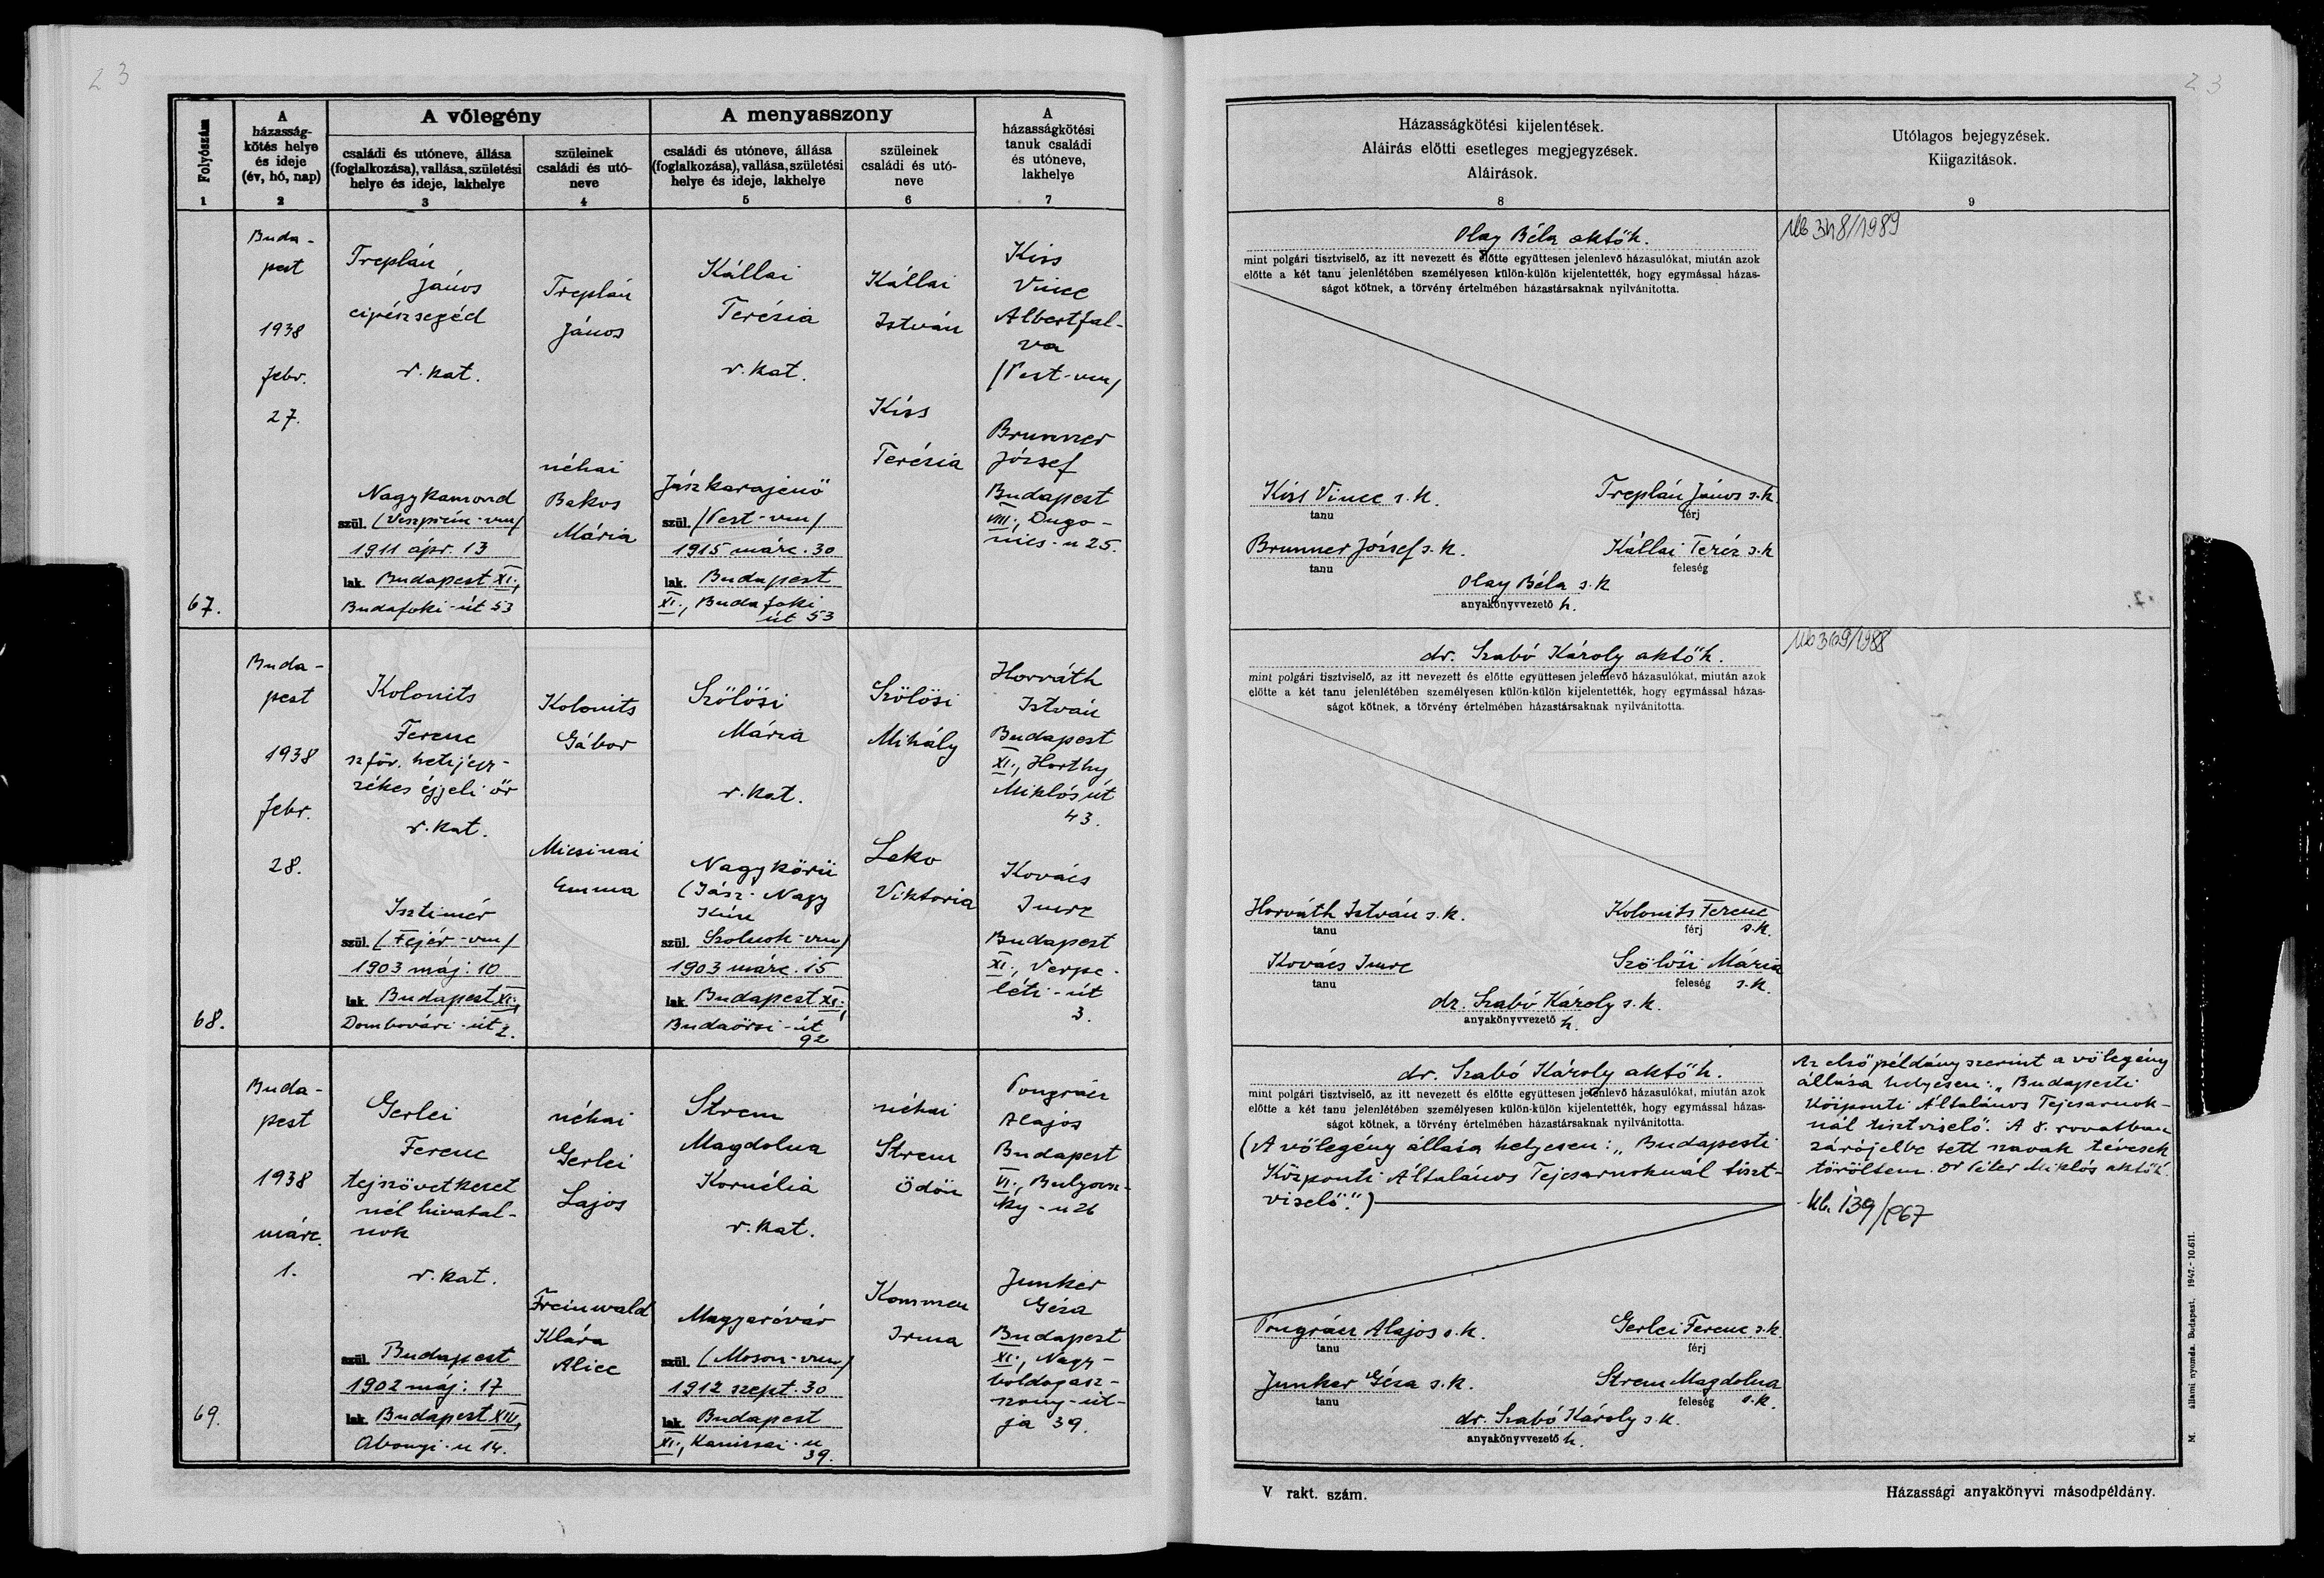 23
23
Folyószám
1
A
házasság-
kötés helye
és ideje
(év, hó, nap)
2
A vőlegény
családi és utóneve, állása
(foglalkozása), vallása, születési
helye és ideje, lakhelye
3
szüleinek
családi és utó-
neve
4
A menyasszony
családi és utóneve, állása
(foglalkozása), vallása, születési
helye és ideje, lakhelye
5
szüleinek
családi és utó-
neve
6
A
házasságkötési
tanuk családi
és utóneve,
lakhelye
7
Házasságkötési kijelentések.
Aláirás előtti esetleges megjegyzések.
Aláirások.
8
Utólagos bejegyzések.
Kiigazitások.
9
67.
Buda-
pest
1938
febr.
27.
Treplán
János
cipészsegéd
r. kat.
Nagykamond
szül. (Veszprém-vm)
1911 ápr. 13
lak. Budapest XI.,
Budafoki-út 53
Treplán
János
néhai
Bakos
Mária
Kállai
Terézia
r. kat.
Jászkarajenő
szül. (Pest-vm)
1915 márc. 30
lak. Budapest
XI., Budafoki
út 53
Kállai
István
Kiss
Terézia
Kiss
Vince
Albertfal-
va
(Pest-vm)
Brunner
József
Budapest
VIII., Dugo-
nics-u 25.
Olay Béla aktőh.
mint polgári tisztviselő, az itt nevezett és előtte együttesen jelenlevő házasulókat, miután azok
előtte a két tanu jelenlétében személyesen külön-külön kijelentették, hogy egymással házas-
ságot kötnek, a törvény értelmében házastársaknak nyilvánitotta.
Kiss Vince s. k.
tanu
Treplán János s. k.
férj
Brunner József s. k.
tanu
Kállai Teréz s. k
feleség
Olay Béla s. k
anyakönyvvezető h.
Ub 348/1989
68.
Buda-
pest
1938
febr.
28.
Kolonits
Ferenc
szföv. hetijegy-
zékes éjjeli őr
r. kat.
Isztimér
szül. (Fejér-vm)
1903 máj. 10
lak. Budapest XI.,
Dombovári-út 2.
Kolonits
Gábor
Micsinai
Emma
Szőlősi
Mária
r. kat.
Nagykörü
(Jász-Nagy
Kún
szül. Szolnok-vm)
1903 márc. 15
lak. Budapest XI.,
Budaörsi-út
92
Szőlősi
Mihály
Leko
Viktoria
Horváth
István
Budapest
XI., Horthy
Miklós út
43.
Kovács
Imre
Budapest
XI., Verpe-
léti-út
3.
dr. Szabó Károly aktőh.
mint polgári tisztviselő, az itt nevezett és előtte együttesen jelenlevő házasulókat, miután azok
előtte a két tanu jelenlétében személyesen külön-külön kijelentették, hogy egymással házas-
ságot kötnek, a törvény értelmében házastársaknak nyilvánitotta.
Horváth István s. k.
tanu
Kolonits Ferenc
férj s. k.
Kovács Imre
tanu
Szőlősi Mária
feleség s. k.
dr. Szabó Károly s. k.
anyakönyvvezető h.
Ub 369/1988
69.
Buda-
pest
1938
márc.
1.
Gerlei
Ferenc
tejszövetkezet
nél hivatal-
nok
r. kat.
szül. Budapest
1902 máj. 17
lak. Budapest XIV.,
Abonyi-u 14.
néhai
Gerlei
Lajos
Freinwald
Klára
Alice
Strem
Magdolna
Kornélia
r. kat.
Magyaróvár
szül. (Moson-vm)
1912 szept. 30
lak. Budapest
XI., Kanizsai-u
39.
néhai
Strem
Ödön
Kommen
Irma
Pongrácz
Alajos
Budapest
VI., Bulyovsz-
ky-u 26
Junker
Géza
Budapest
XI., Nagy-
boldogasz-
szony-út-
ja 39.
dr. Szabó Károly aktőh.
mint polgári tisztviselő, az itt nevezett és előtte együttesen jelenlevő házasulókat, miután azok
előtte a két tanu jelenlétében személyesen külön-külön kijelentették, hogy egymással házas-
ságot kötnek, a törvény értelmében házastársaknak nyilvánitotta.
(A vőlegény állása helyesen: „Budapesti
Központi Általános Tejcsarnoknál tiszt-
viselő.")
Pongrácz Alajos s. k.
tanu
Gerlei Ferenc s. k.
férj
Junker Géza s. k.
tanu
Strem Magdolna
feleség s. k.
dr. Szabó Károly s. k.
anyakönyvvezető h.
Az első példány szerint a vőlegény
állása helyesen: „Budapesti
Központi Általános Tejcsarnok-
nál tisztviselő". A 8. rovatban
zárójelbe tett szavak tévesek
töröltem. Dr Péter Miklós aktőh.
Ub. 139/967
M. állami nyomda. Budapest, 1947.-10.611.
V rakt. szám.
Házassági anyakönyvi másodpéldány.